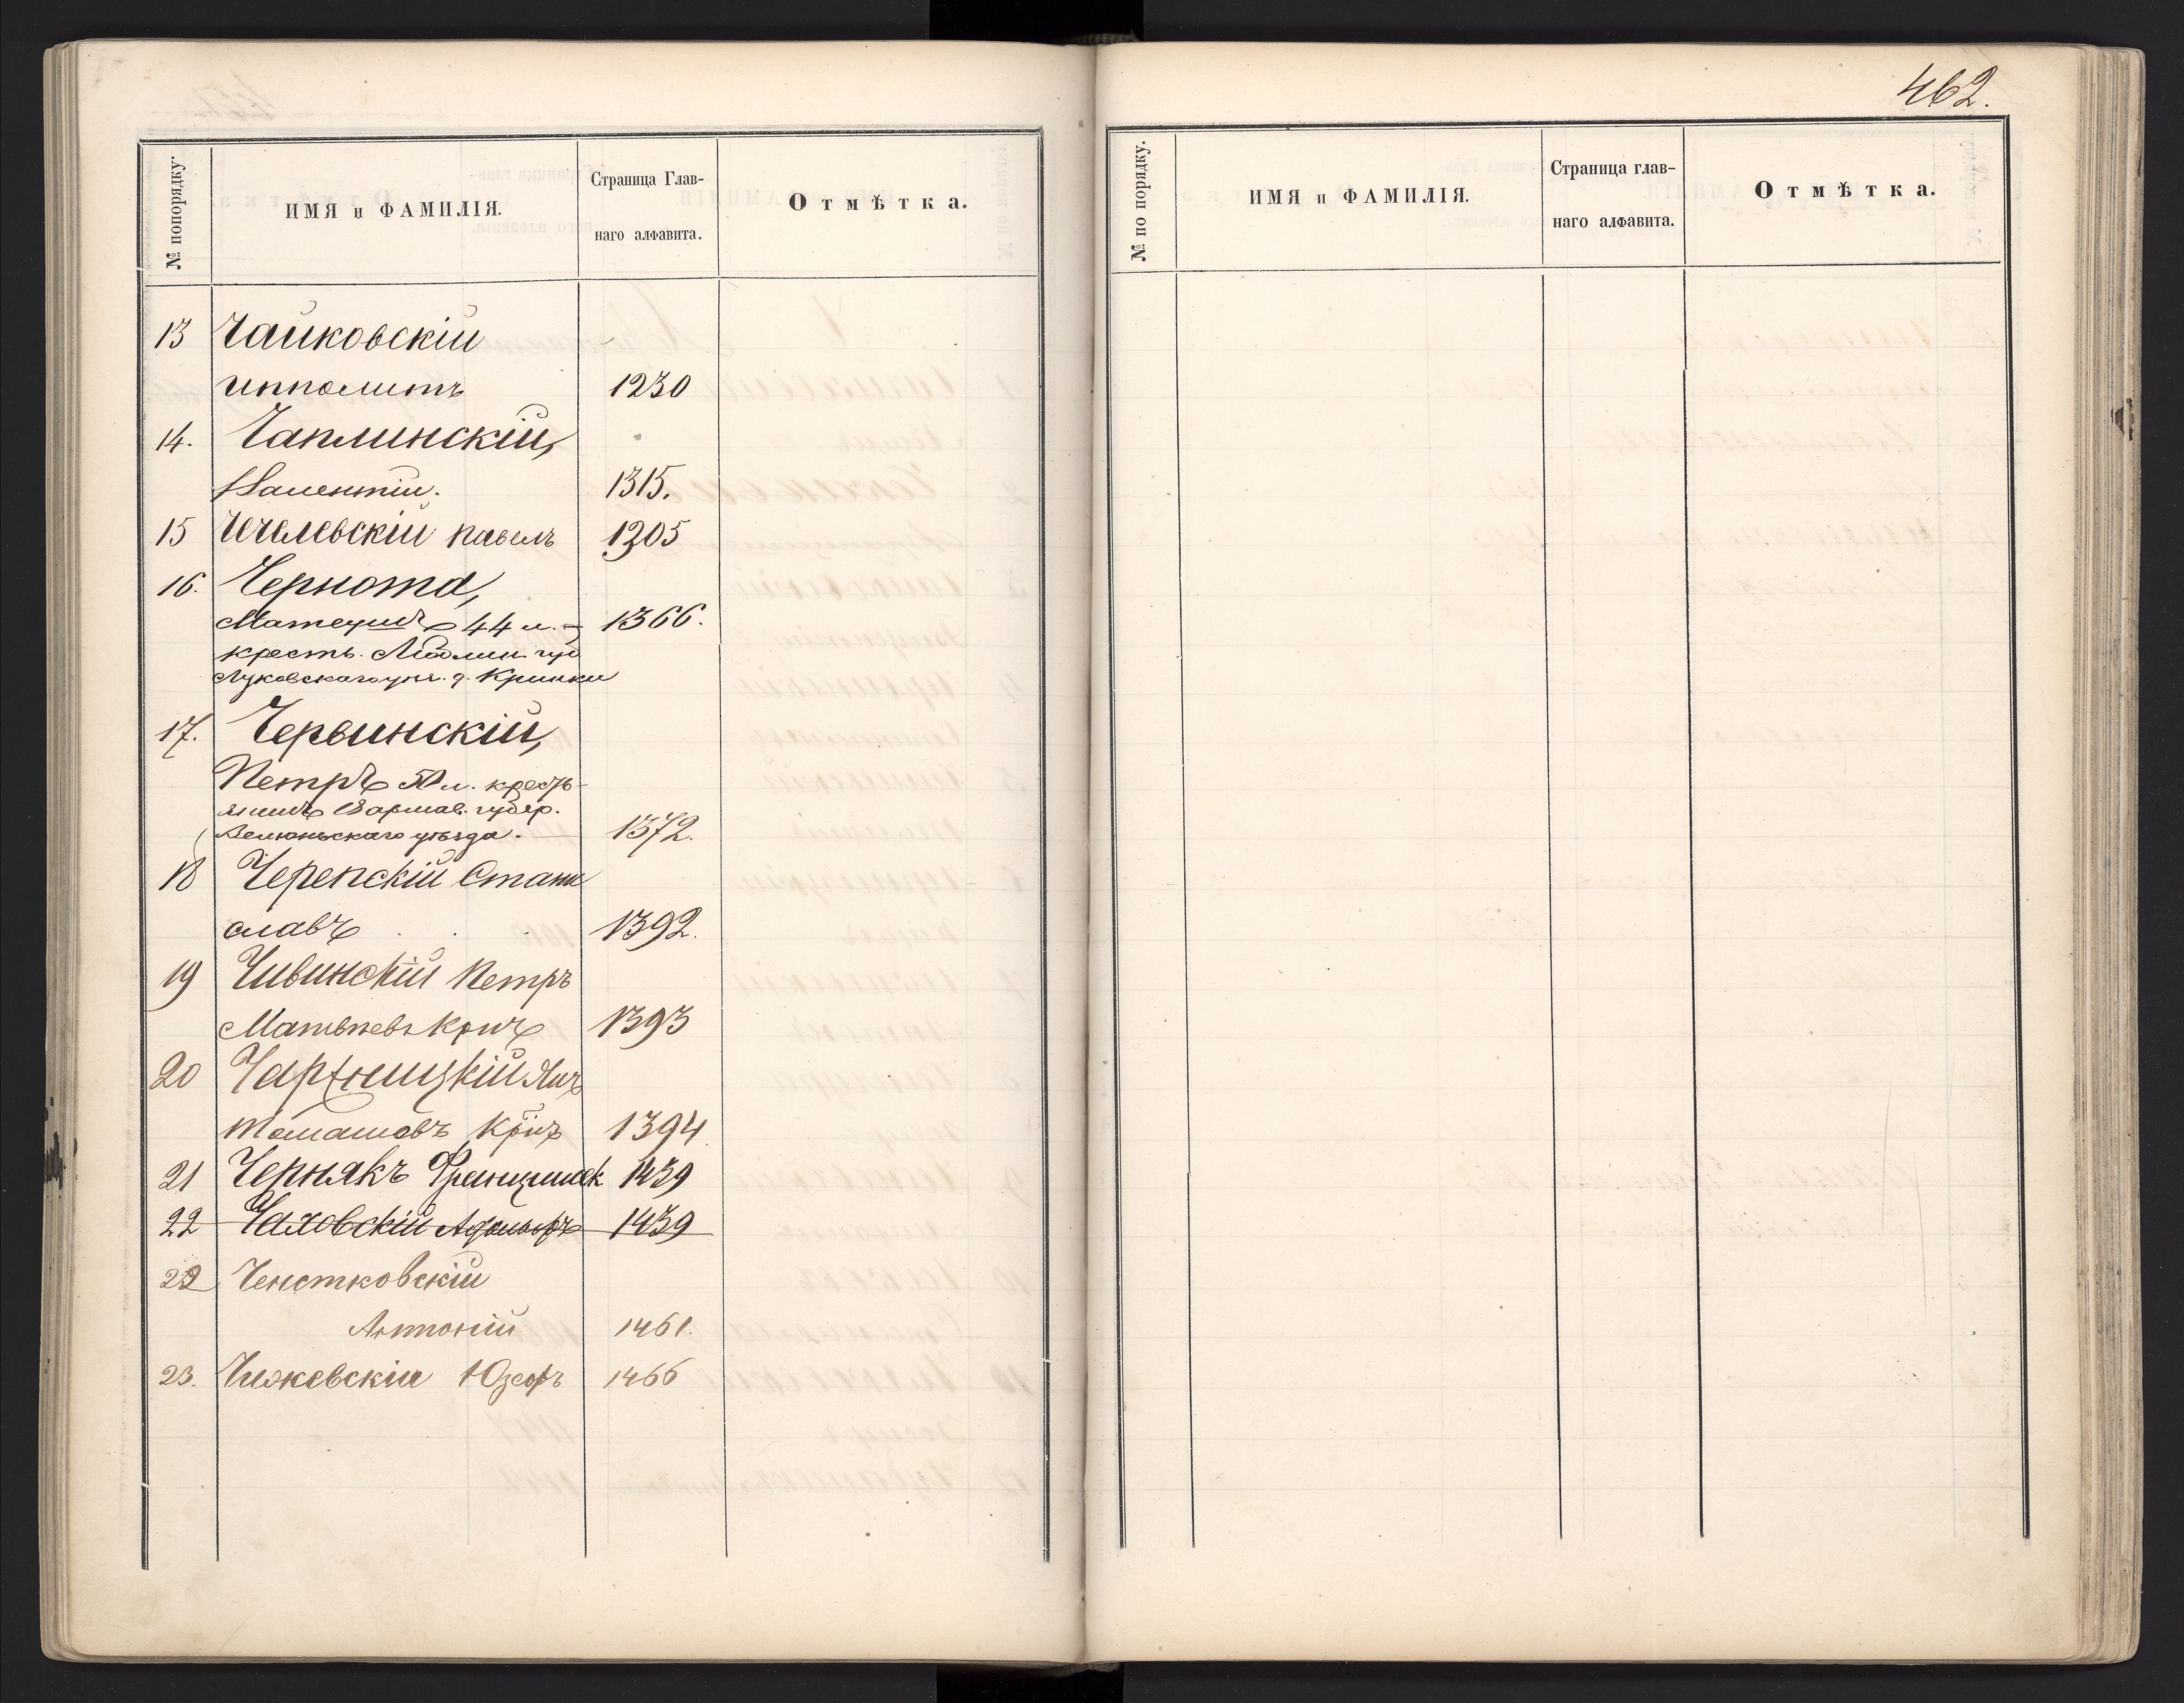 462.
№ попорядку.
ИМЯ и ФАМИЛІЯ.
Страница Глав-
наго алфавита.
Отмѣтка.
13 Чайковскій
Ипполитъ 1230
14. Чаплинскій,
Валентій. 1315.
15 Чечелевскій Павелъ 1305
16. Чернота,
Матеушъ 44 л. 1366.
кресть. Люблин. губ
Луковскаго уѣз. д. Кринки
17. Червинскій,
Петръ 50 л. кресть-
янинъ Варшав. губер.
Велюньскаго уѣзда. 1372.
18 Черепскій Стани
славъ 1392.
19 Чивинскій Петръ
Матвѣевъ Крич 1393
20 Янъ
Томашовъ 1394
21 Чернякъ Францишек 1439
22 Чаховскій Адольфъ 1439
22 Ченстковскій
Антоній 1461.
23. Чижевскій Юзефъ 1466
№ по порядку.
ИМЯ и ФАМИЛІЯ.
Страница глав-
наго алфавита.
Отмѣтка.